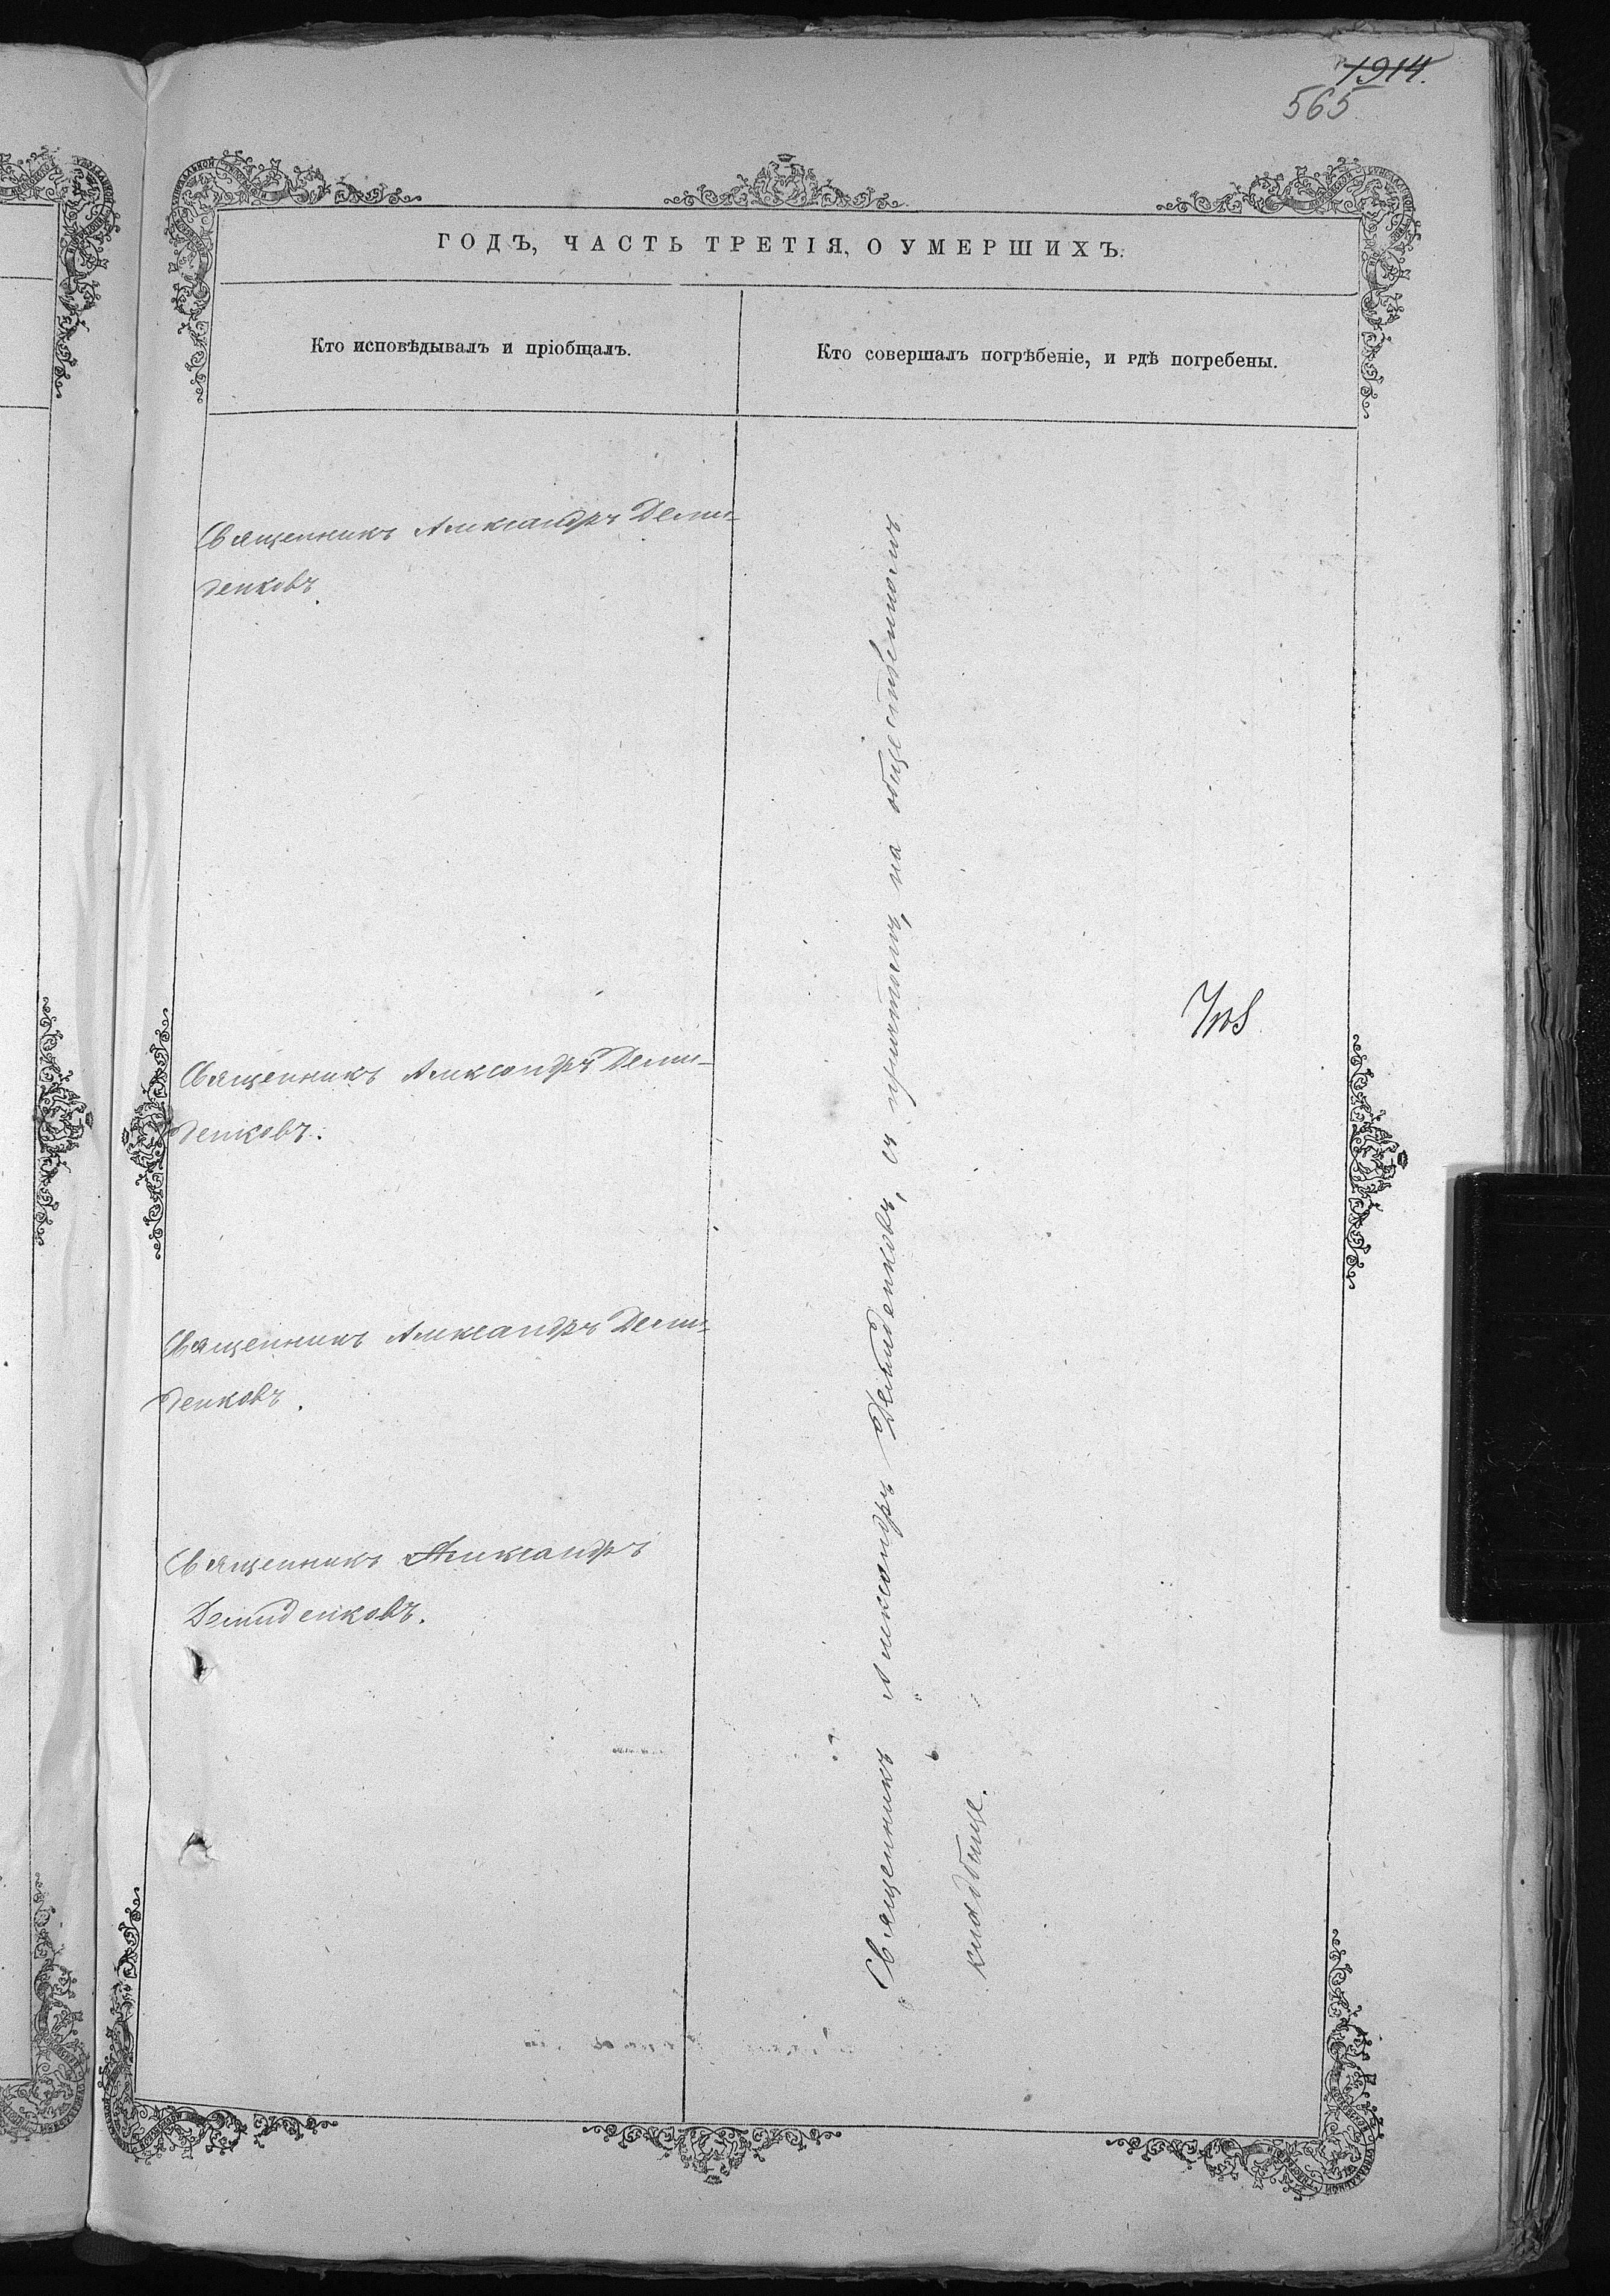 1914.
565
ГОДЪ, ЧАСТЬ ТРЕТІЯ, О УМЕРШИХЪ.
Кто исповѣдывалъ и пріобщалъ.
Кто совершалъ погрѣбеніе, и гдѣ погребены.
Священникъ Александръ Деми-
денковъ.
Священникъ Александръ Деми-
денковъ.
Священникъ Александръ Деми-
денковъ.
Священникъ Александръ
Демиденковъ.
Священникъ Александръ Демиденковъ, съ причтомъ, на общественномъ
кладбище.